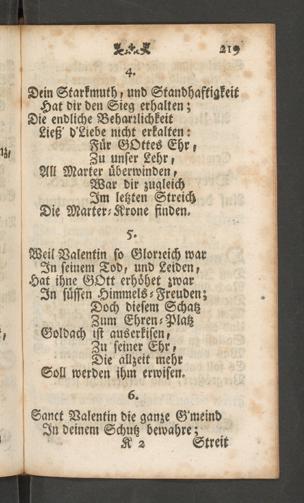 219
4.
Dein Starkmuth, und Standhaftigkeit
Hat dir den Sieg erhalten;
Die endliche Beharrlichkeit
Ließ' d'Liebe nicht erkalten:
Für GOttes Ehr,
Zu unser Lehr,
All Marter überwinden,
War dir zugleich
Im letzten Streich
Die Marter-Krone finden.
5.
Weil Valentin so Glorreich war
In seinem Tod, und Leiden,
Hat ihne GOtt erhöhet zwar
In süssen Himmels-Freuden;
Doch diesem Schatz
Zum Ehren-Platz
Goldach ist auserkisen,
Zu seiner Ehr,
Die allzeit mehr
Soll werden ihm erwisen.
6.
Sanct Valentin die ganze G'meind
In deinem Schutz bewahre;
K 2 Streit